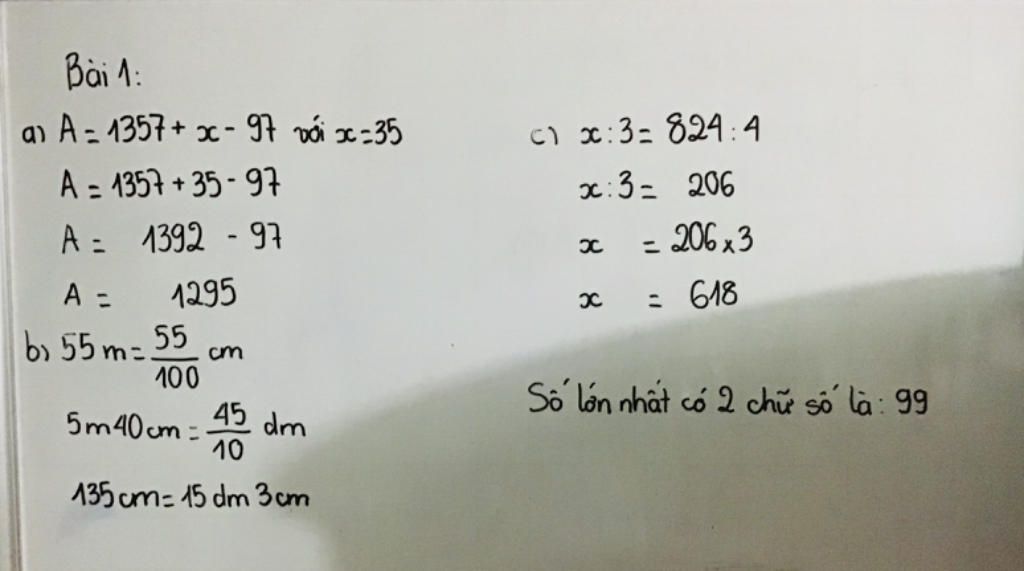 Bài 1:
a) A = 1357 + x - 97 với x = 35
A = 1357 + 35 - 97
A = 1392 - 97
A = 1295
b) 55 m = 55/100 cm
5m40cm = 45/10 dm
135cm = 15 dm 3cm
c) x : 3 = 824 : 4
x : 3 = 206
x = 206 x 3
x = 618
Số lớn nhất có 2 chữ số là: 99